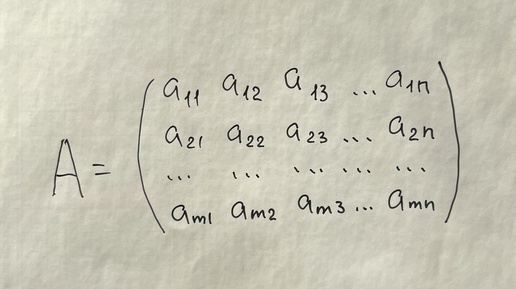 A = ( a₁₁ a₁₂ a₁₃ ... a₁ₙ
a₂₁ a₂₂ a₂₃ ... a₂ₙ
... ... ... ... ...
aₘ₁ aₘ₂ aₘ₃ ... aₘₙ )